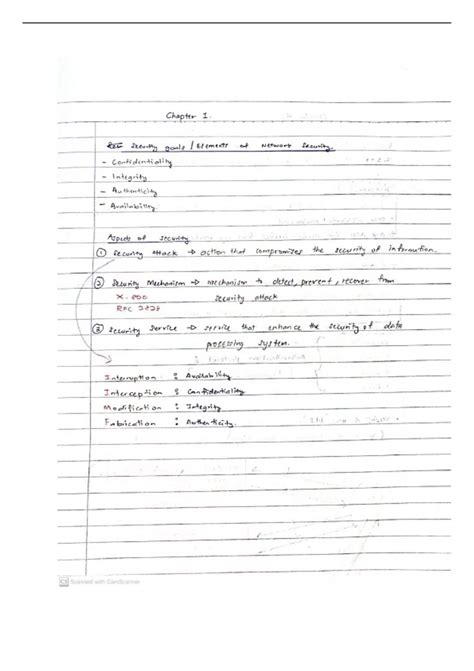 Chapter 1.
Security goals / Elements of Network Security.
- Confidentiality
- Integrity
- Authenticity
- Availability
Aspects of security
① Security attack → action that compromizes the security of information.
② Security Mechanism → mechanism to detect, prevent, recover from
X.800 security attack
RFC 2828
③ Security Service → service that enhance the security of data
processing system.
Interruption : Availability
Interception : Confidentiality
Modification : Integrity
Fabrication : Authenticity.
CS Scanned with CamScanner